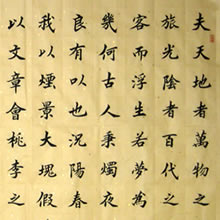 夫天地者萬物之
旅光陰者百代之
客而浮生若夢為
幾何古人秉燭夜
良有以也況陽春
我以煙景大塊假
以文章會桃李之